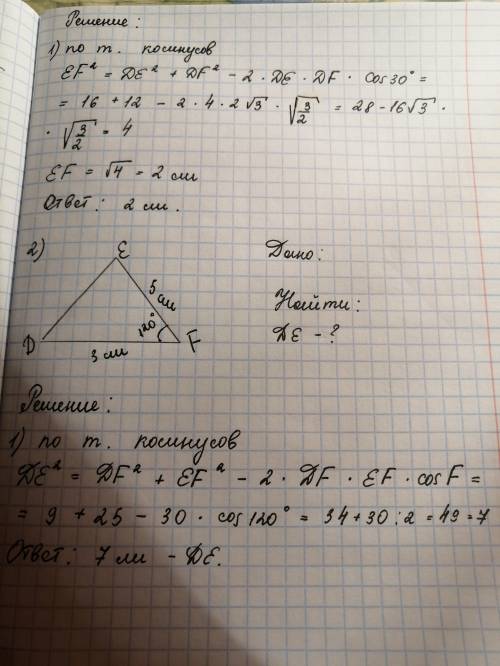 Решение:
1) по т. косинусов
EF² = DE² + DF² - 2 · DE · DF · cos 30° =
= 16 + 12 - 2 · 4 · 2√3 · √(3/2) = 28 - 16√3 ·
· √(3/2) = 4
EF = √4 = 2 см
Ответ: 2 см.
2)
E
Дано:
5 см
Найти:
120°
DE - ?
D
F
3 см
Решение:
1) по т. косинусов
DE² = DF² + EF² - 2 · DF · EF · cos F =
= 9 + 25 - 30 · cos 120° = 34 + 30 : 2 = 49 = 7
Ответ: 7 см - DE.